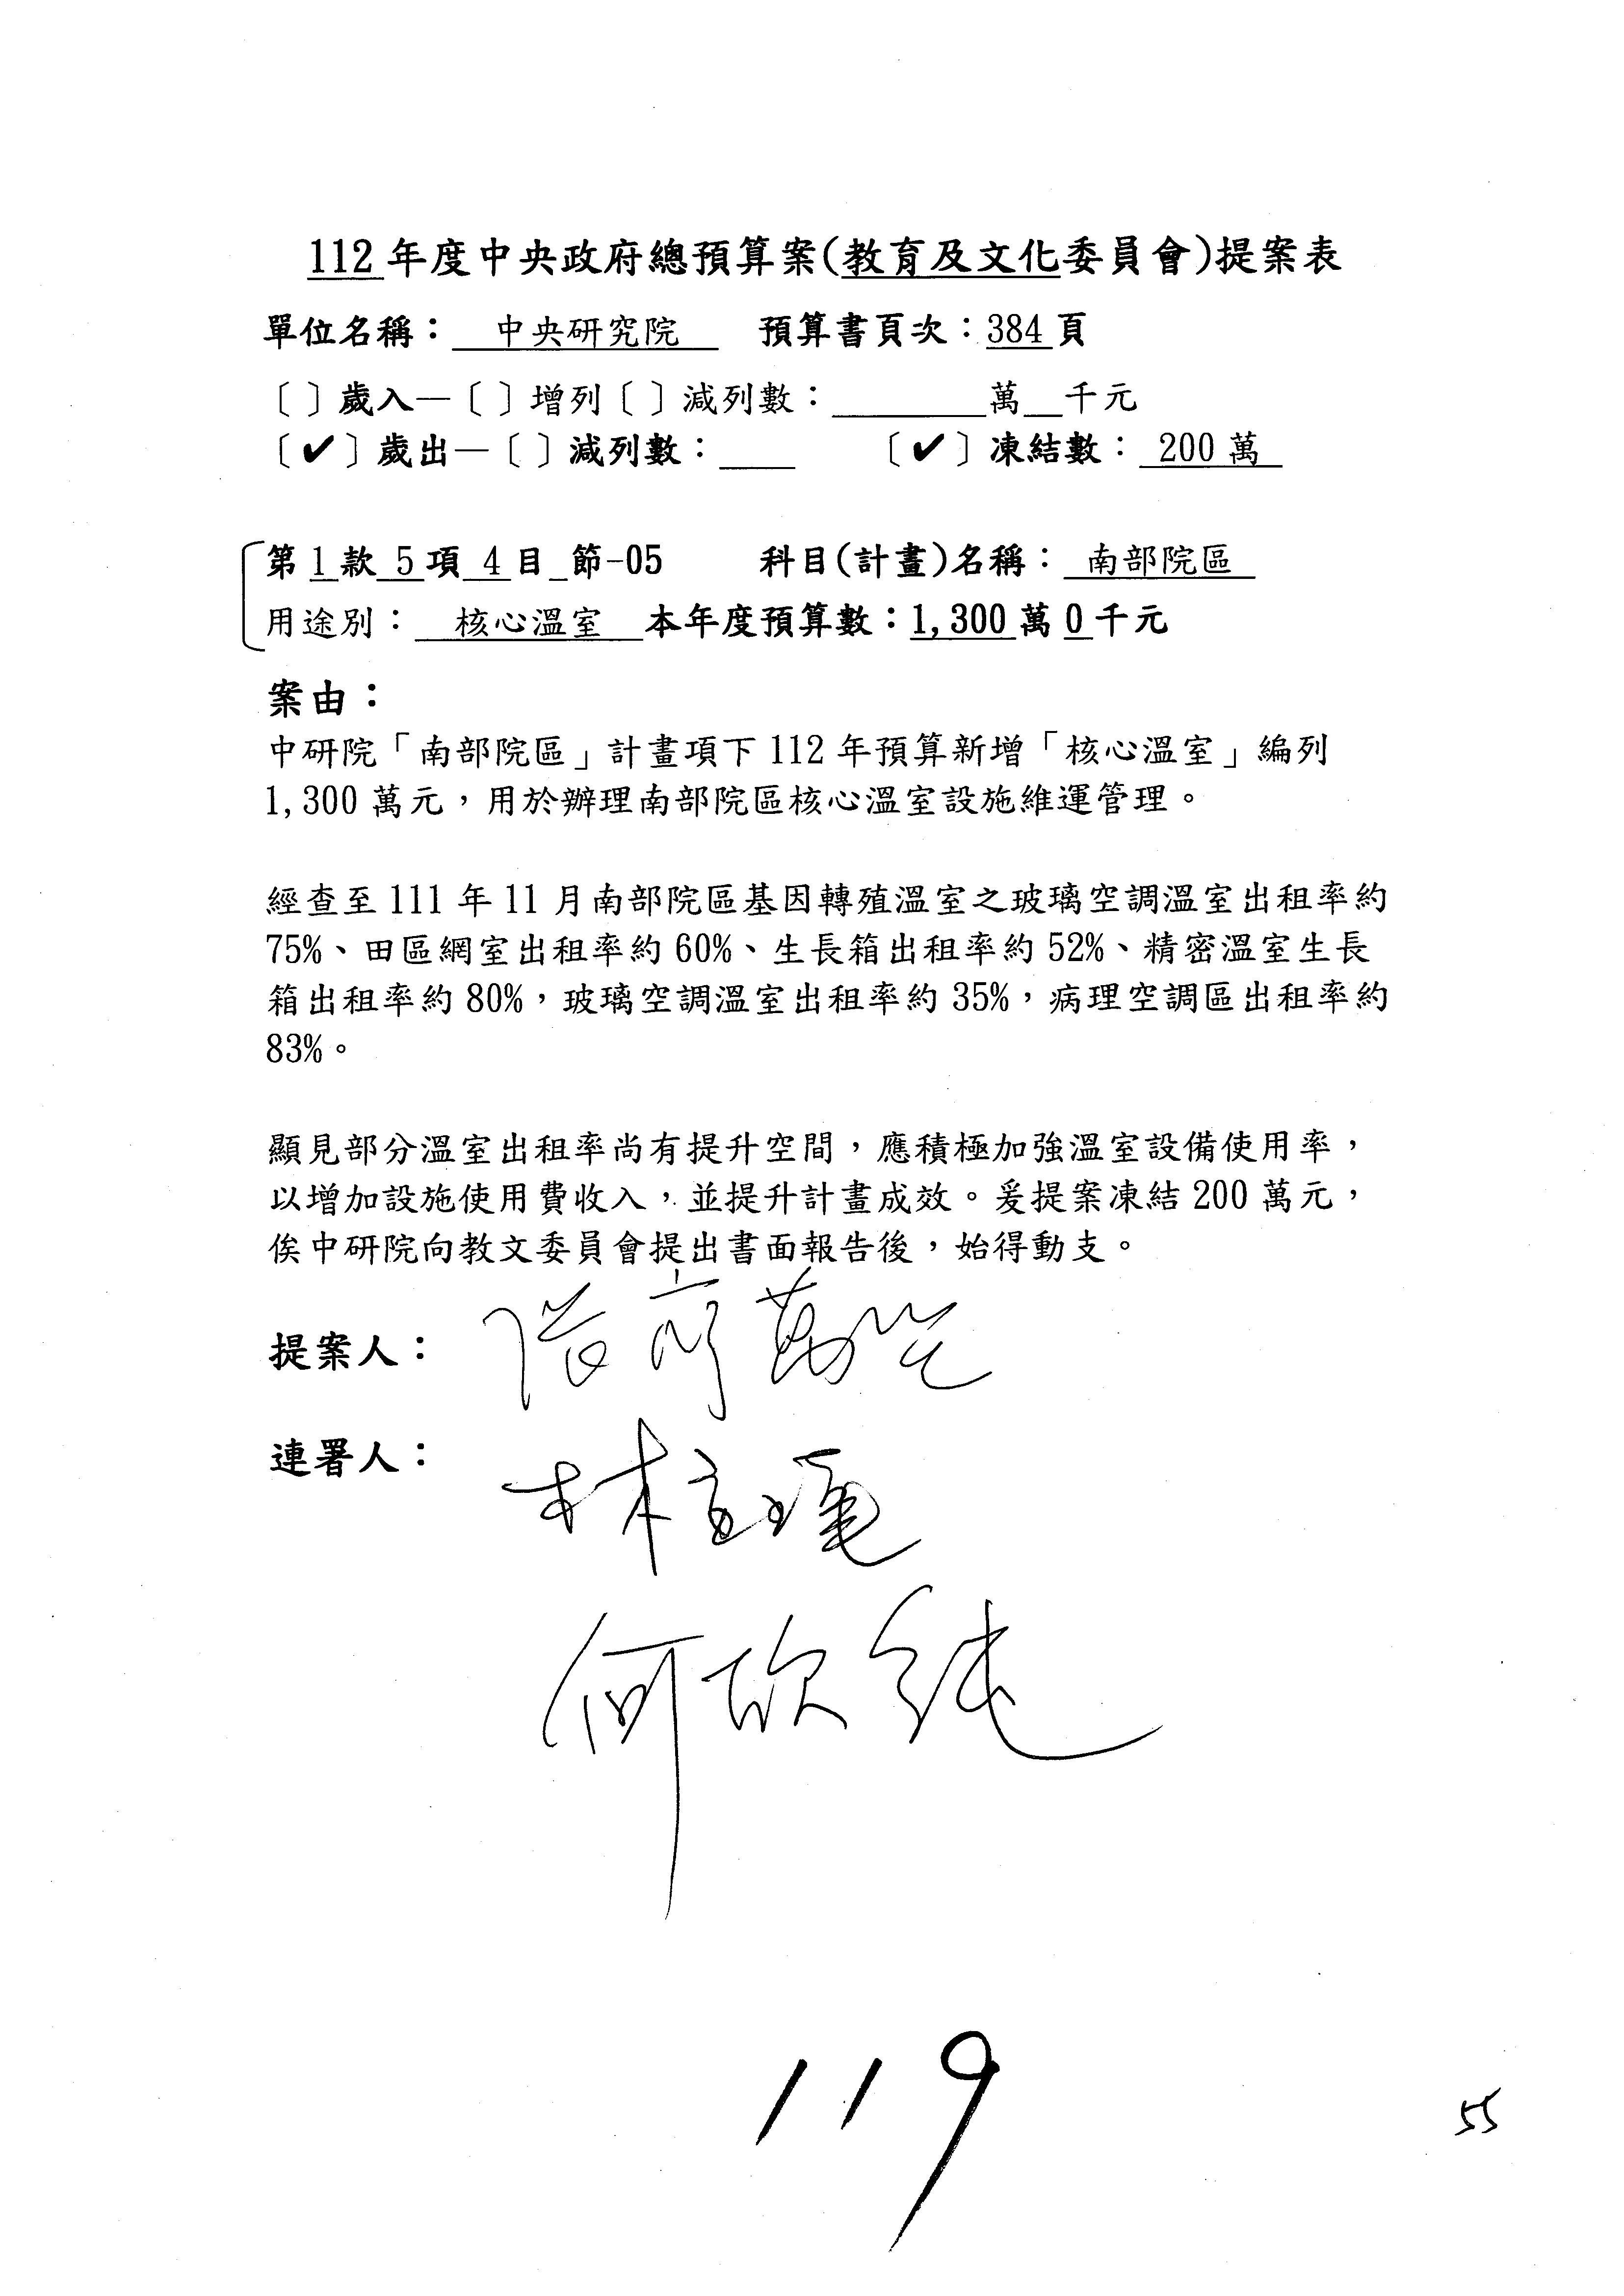 112年度中央政府總預算案(教育及文化委員會)提案表
單位名稱：中央研究院 預算書頁次：384頁
〔〕歲入—〔〕增列〔〕減列數：______萬__千元
〔✔〕歲出—〔〕減列數：____ 〔✔〕凍結數：200萬
第1款5項4目_節-05 科目(計畫)名稱：南部院區
用途別：核心溫室 本年度預算數：1,300萬0千元
案由：
中研院「南部院區」計畫項下112年預算新增「核心溫室」編列
1,300萬元，用於辦理南部院區核心溫室設施維運管理。
經查至111年11月南部院區基因轉殖溫室之玻璃空調溫室出租率約
75%、田區網室出租率約60%、生長箱出租率約52%、精密溫室生長
箱出租率約80%，玻璃空調溫室出租率約35%，病理空調區出租率約
83%。
顯見部分溫室出租率尚有提升空間，應積極加強溫室設備使用率，
以增加設施使用費收入，並提升計畫成效。爰提案凍結200萬元，
俟中研院向教文委員會提出書面報告後，始得動支。
提案人：
連署人：
何欣純
119
55